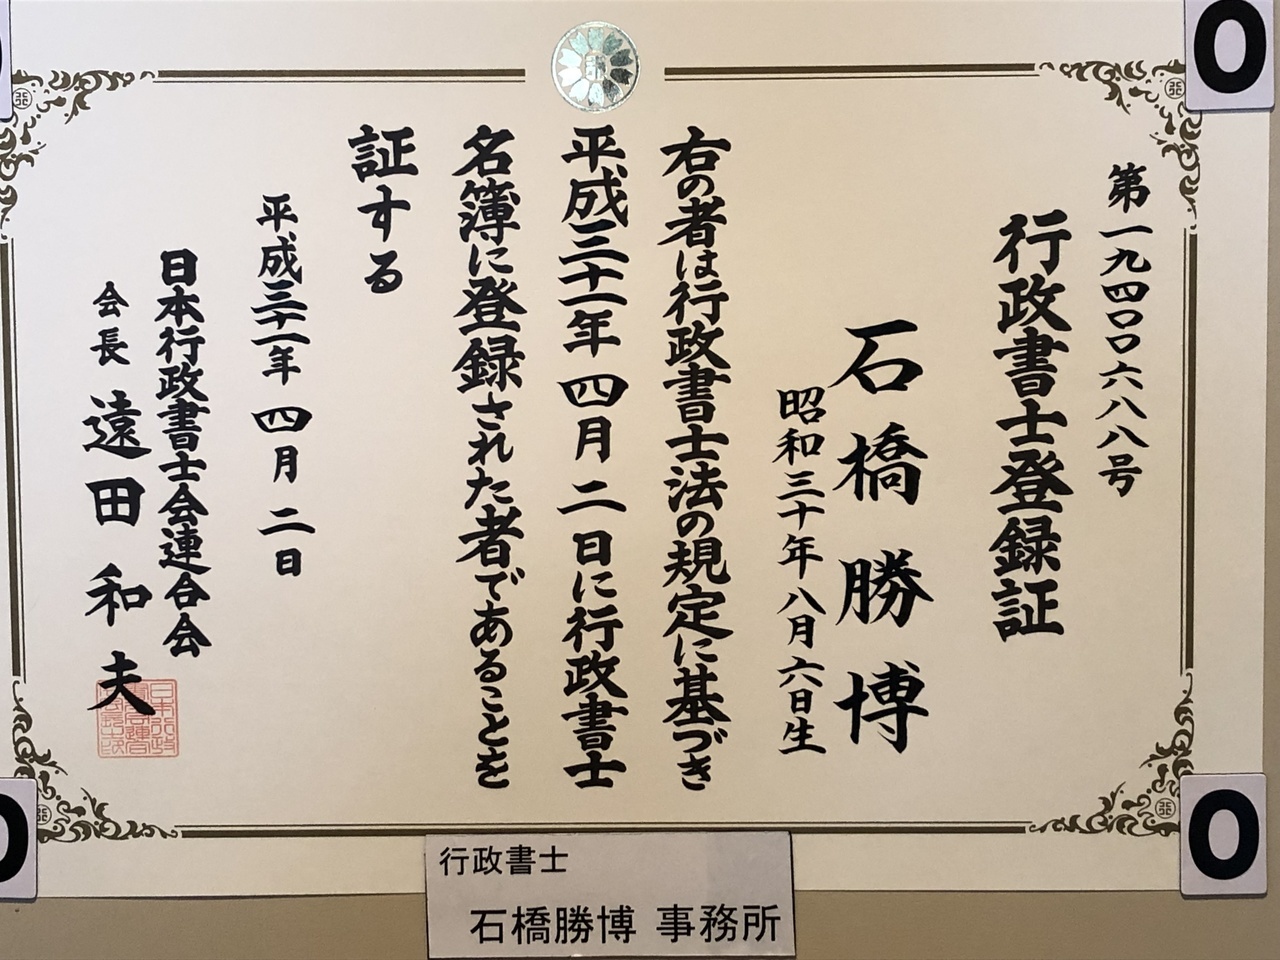 第一九四〇〇六八八号
行政書士登録証
石橋勝博
昭和三十年八月六日生
右の者は行政書士法の規定に基づき
平成三十一年四月二日に行政書士
名簿に登録された者であることを
証する
平成三十一年四月二日
日本行政書士会連合会
会長 遠田和夫
行政書士
石橋勝博 事務所
0
0